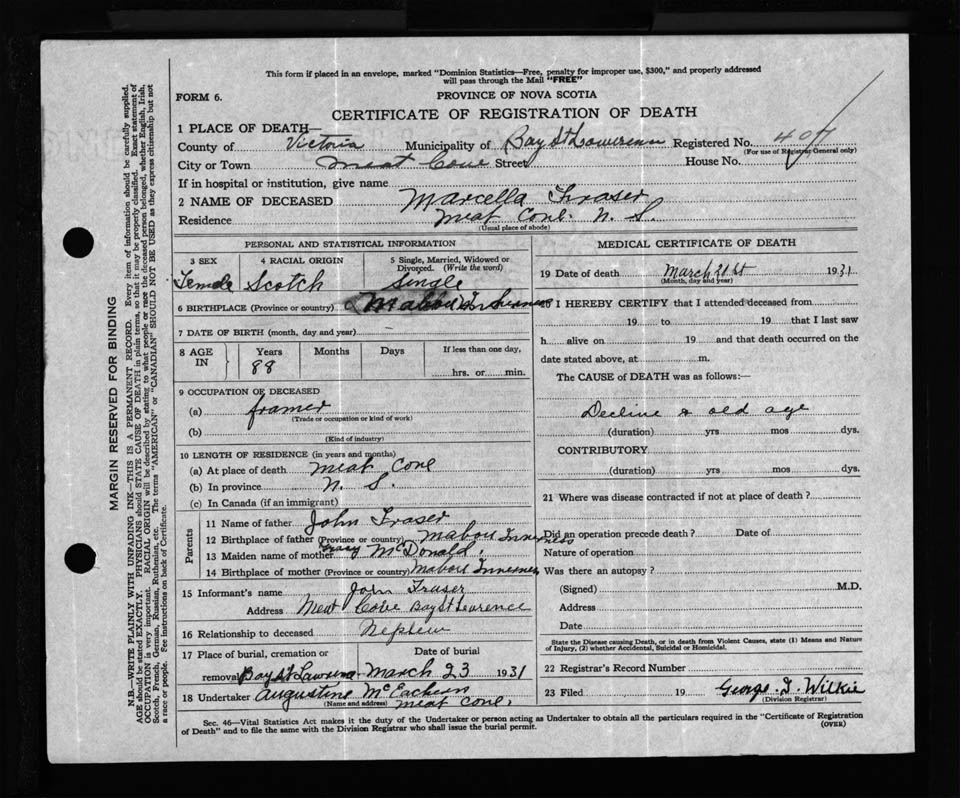 This form if placed in an envelope, marked "Dominion Statistics—Free, penalty for improper use, $300," and properly addressed
will pass through the Mail "FREE"
FORM 6.
PROVINCE OF NOVA SCOTIA
CERTIFICATE OF REGISTRATION OF DEATH
1 PLACE OF DEATH—
County of Victoria Municipality of Bay St Registered No. 407
(For use of Registrar General only)
City or Town Meat Cove Street House No.
If in hospital or institution, give name
2 NAME OF DECEASED Marcella Fraser
Residence Meat Cove. N. S.
(Usual place of abode)
PERSONAL AND STATISTICAL INFORMATION
3 SEX 4 RACIAL ORIGIN 5 Single, Married, Widowed or Divorced. (Write the word)
Female Scotch Single
6 BIRTHPLACE (Province or country) Mabou Inverness
7 DATE OF BIRTH (month, day and year)
8 AGE IN Years Months Days If less than one day,
88 hrs. or min.
9 OCCUPATION OF DECEASED
(a) framer
(Trade or occupation or kind of work)
(b)
(Kind of industry)
10 LENGTH OF RESIDENCE (in years and months)
(a) At place of death Meat Cove
(b) In province N. S.
(c) In Canada (if an immigrant)
Parents
11 Name of father John Fraser
12 Birthplace of father (Province or country) Mabou Inverness
13 Maiden name of mother McDonald,
14 Birthplace of mother (Province or country) Mabou Inverness
15 Informant's name John Fraser
Address Meat Cove Bay St Lawrence
16 Relationship to deceased Nephew
17 Place of burial, cremation or Date of burial
removal Bay St March 23 1931
18 Undertaker Augustine McEachern
(Name and address) Meat Cove,
MEDICAL CERTIFICATE OF DEATH
19 Date of death March 21st 1931
(Month, day and year)
I HEREBY CERTIFY that I attended deceased from
19 to 19 that I last saw
h alive on 19 and that death occurred on the
date stated above, at m.
The CAUSE of DEATH was as follows:—
Decline & old age
(duration) yrs mos dys.
CONTRIBUTORY
(duration) yrs mos dys.
21 Where was disease contracted if not at place of death?
Did an operation precede death? Date of
Nature of operation
Was there an autopsy?
(Signed) M.D.
Address
Date
State the Disease causing Death, or in death from Violent Causes, state (1) Means and Nature
of Injury, (2) whether Accidental, Suicidal or Homicidal.
22 Registrar's Record Number
23 Filed 19 George I. Wilkie
(Division Registrar)
Sec. 46—Vital Statistics Act makes it the duty of the Undertaker or person acting as Undertaker to obtain all the particulars required in the "Certificate of Registration
of Death" and to file the same with the Division Registrar who shall issue the burial permit.
(OVER)
MARGIN RESERVED FOR BINDING
N.B.—WRITE PLAINLY WITH UNFADING INK—THIS IS A PERMANENT RECORD. Every item of information should be carefully supplied.
AGE should be stated EXACTLY. PHYSICIANS should STATE CAUSE OF DEATH in plain terms, so that it may be properly classified. Exact statement of
OCCUPATION is very important. RACIAL ORIGIN will be described by stating to what people or race the deceased person belonged, whether English, Irish,
Scotch, French, German, Russian, Ruthenian, etc. The terms "AMERICAN" or "CANADIAN" SHOULD NOT BE USED as they express citizenship but not
a race or people. Fee instructions on back of Certificate.